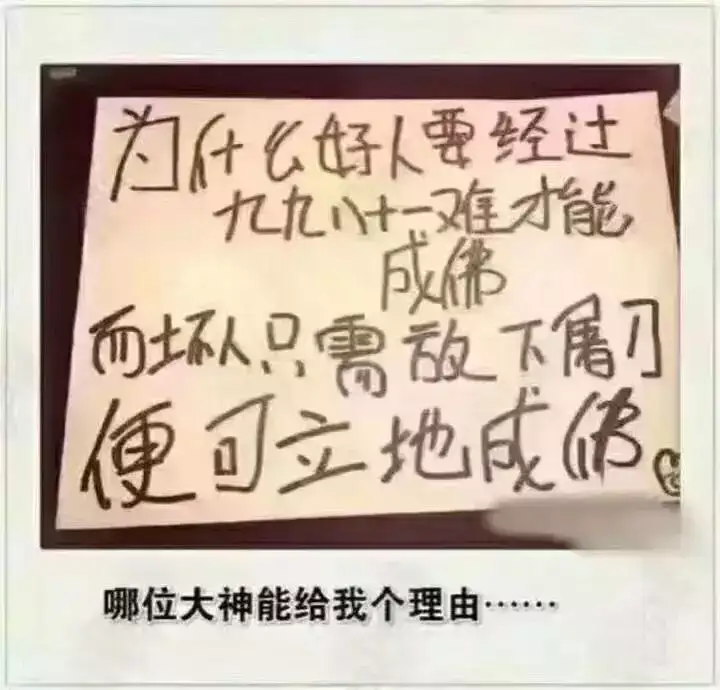 为什么好人要经过
九九八十一难才能
成佛
而坏人只需放下屠刀
便可立地成佛
哪位大神能给我个理由……